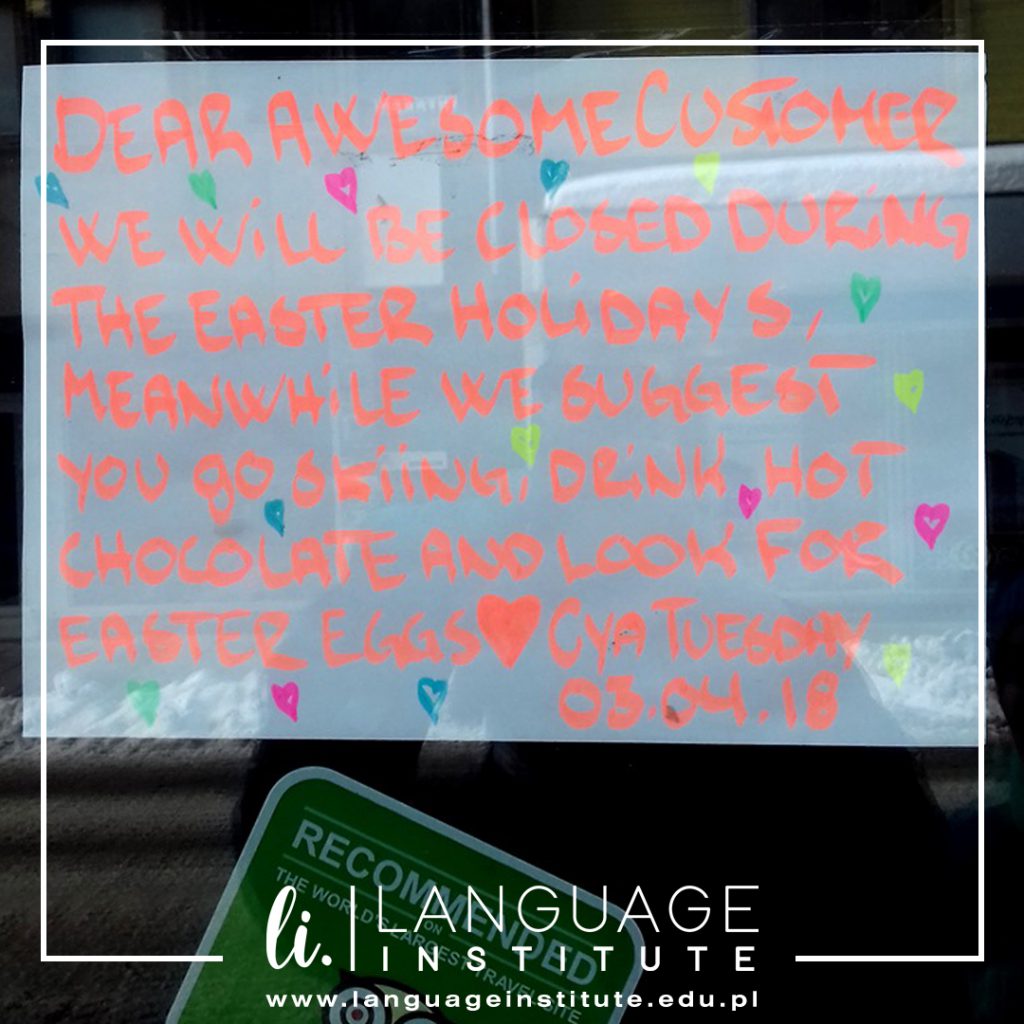 DEAR AWESOME CUSTOMER
WE WiLL BE CLOSED DURiNG
THE EASTER HOLiDAYS,
MEANWHiLE WE SUGGEST
YOU gO SKiiNG, DRiNK HOT
CHOCOLATE AND LOOK FOR
EASTER EGGS♥ CYA TUESDAY
03.04.18
RECOMMENDED
ON
THE WORLD'S LARGEST TRAVEL SITE
li. LANGUAGE
INSTITUTE
www.languageinstitute.edu.pl